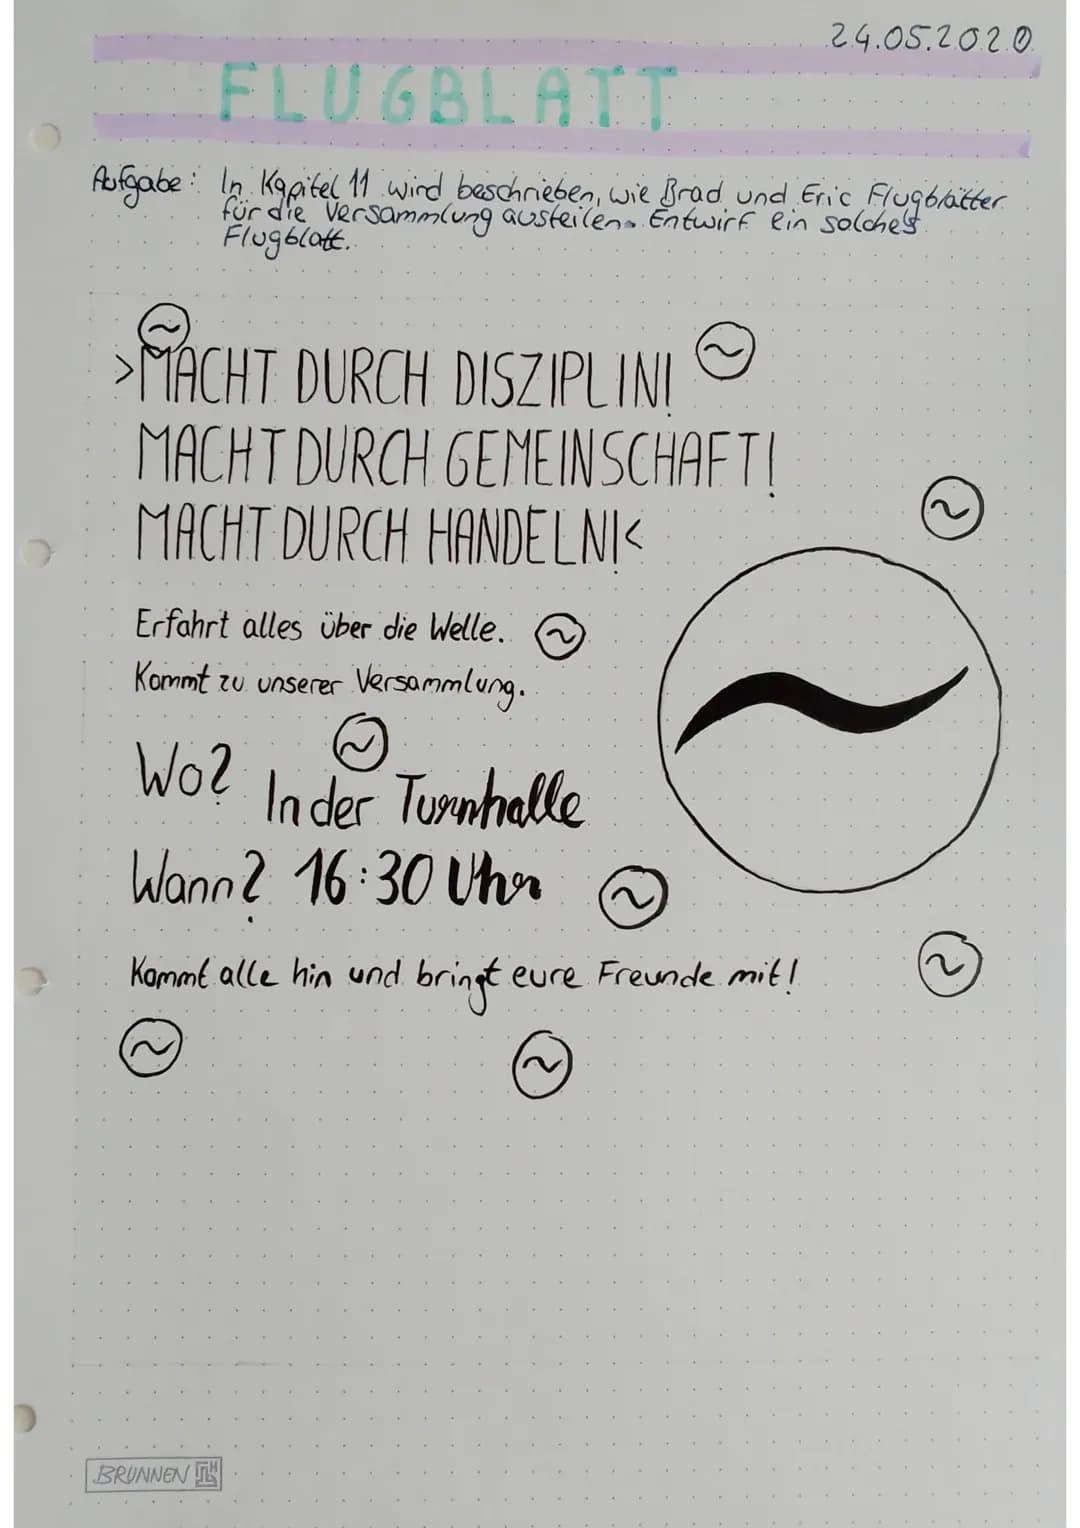 24.05.2020
FLUGBLATT
Aufgabe: In Kapitel 11 wird beschrieben, wie Brad und Eric Flugblätter
für die Versammlung austeilen. Entwirf ein solches
Flugblatt.
>MACHT DURCH DISZIPLIN!
MACHT DURCH GEMEINSCHAFT!
MACHT DURCH HANDELN!<
Erfahrt alles über die Welle.
Kommt zu unserer Versammlung.
Wo? In der Turnhalle
Wann? 16:30 Uhr
Kommt alle hin und bringt eure Freunde mit!
BRUNNEN